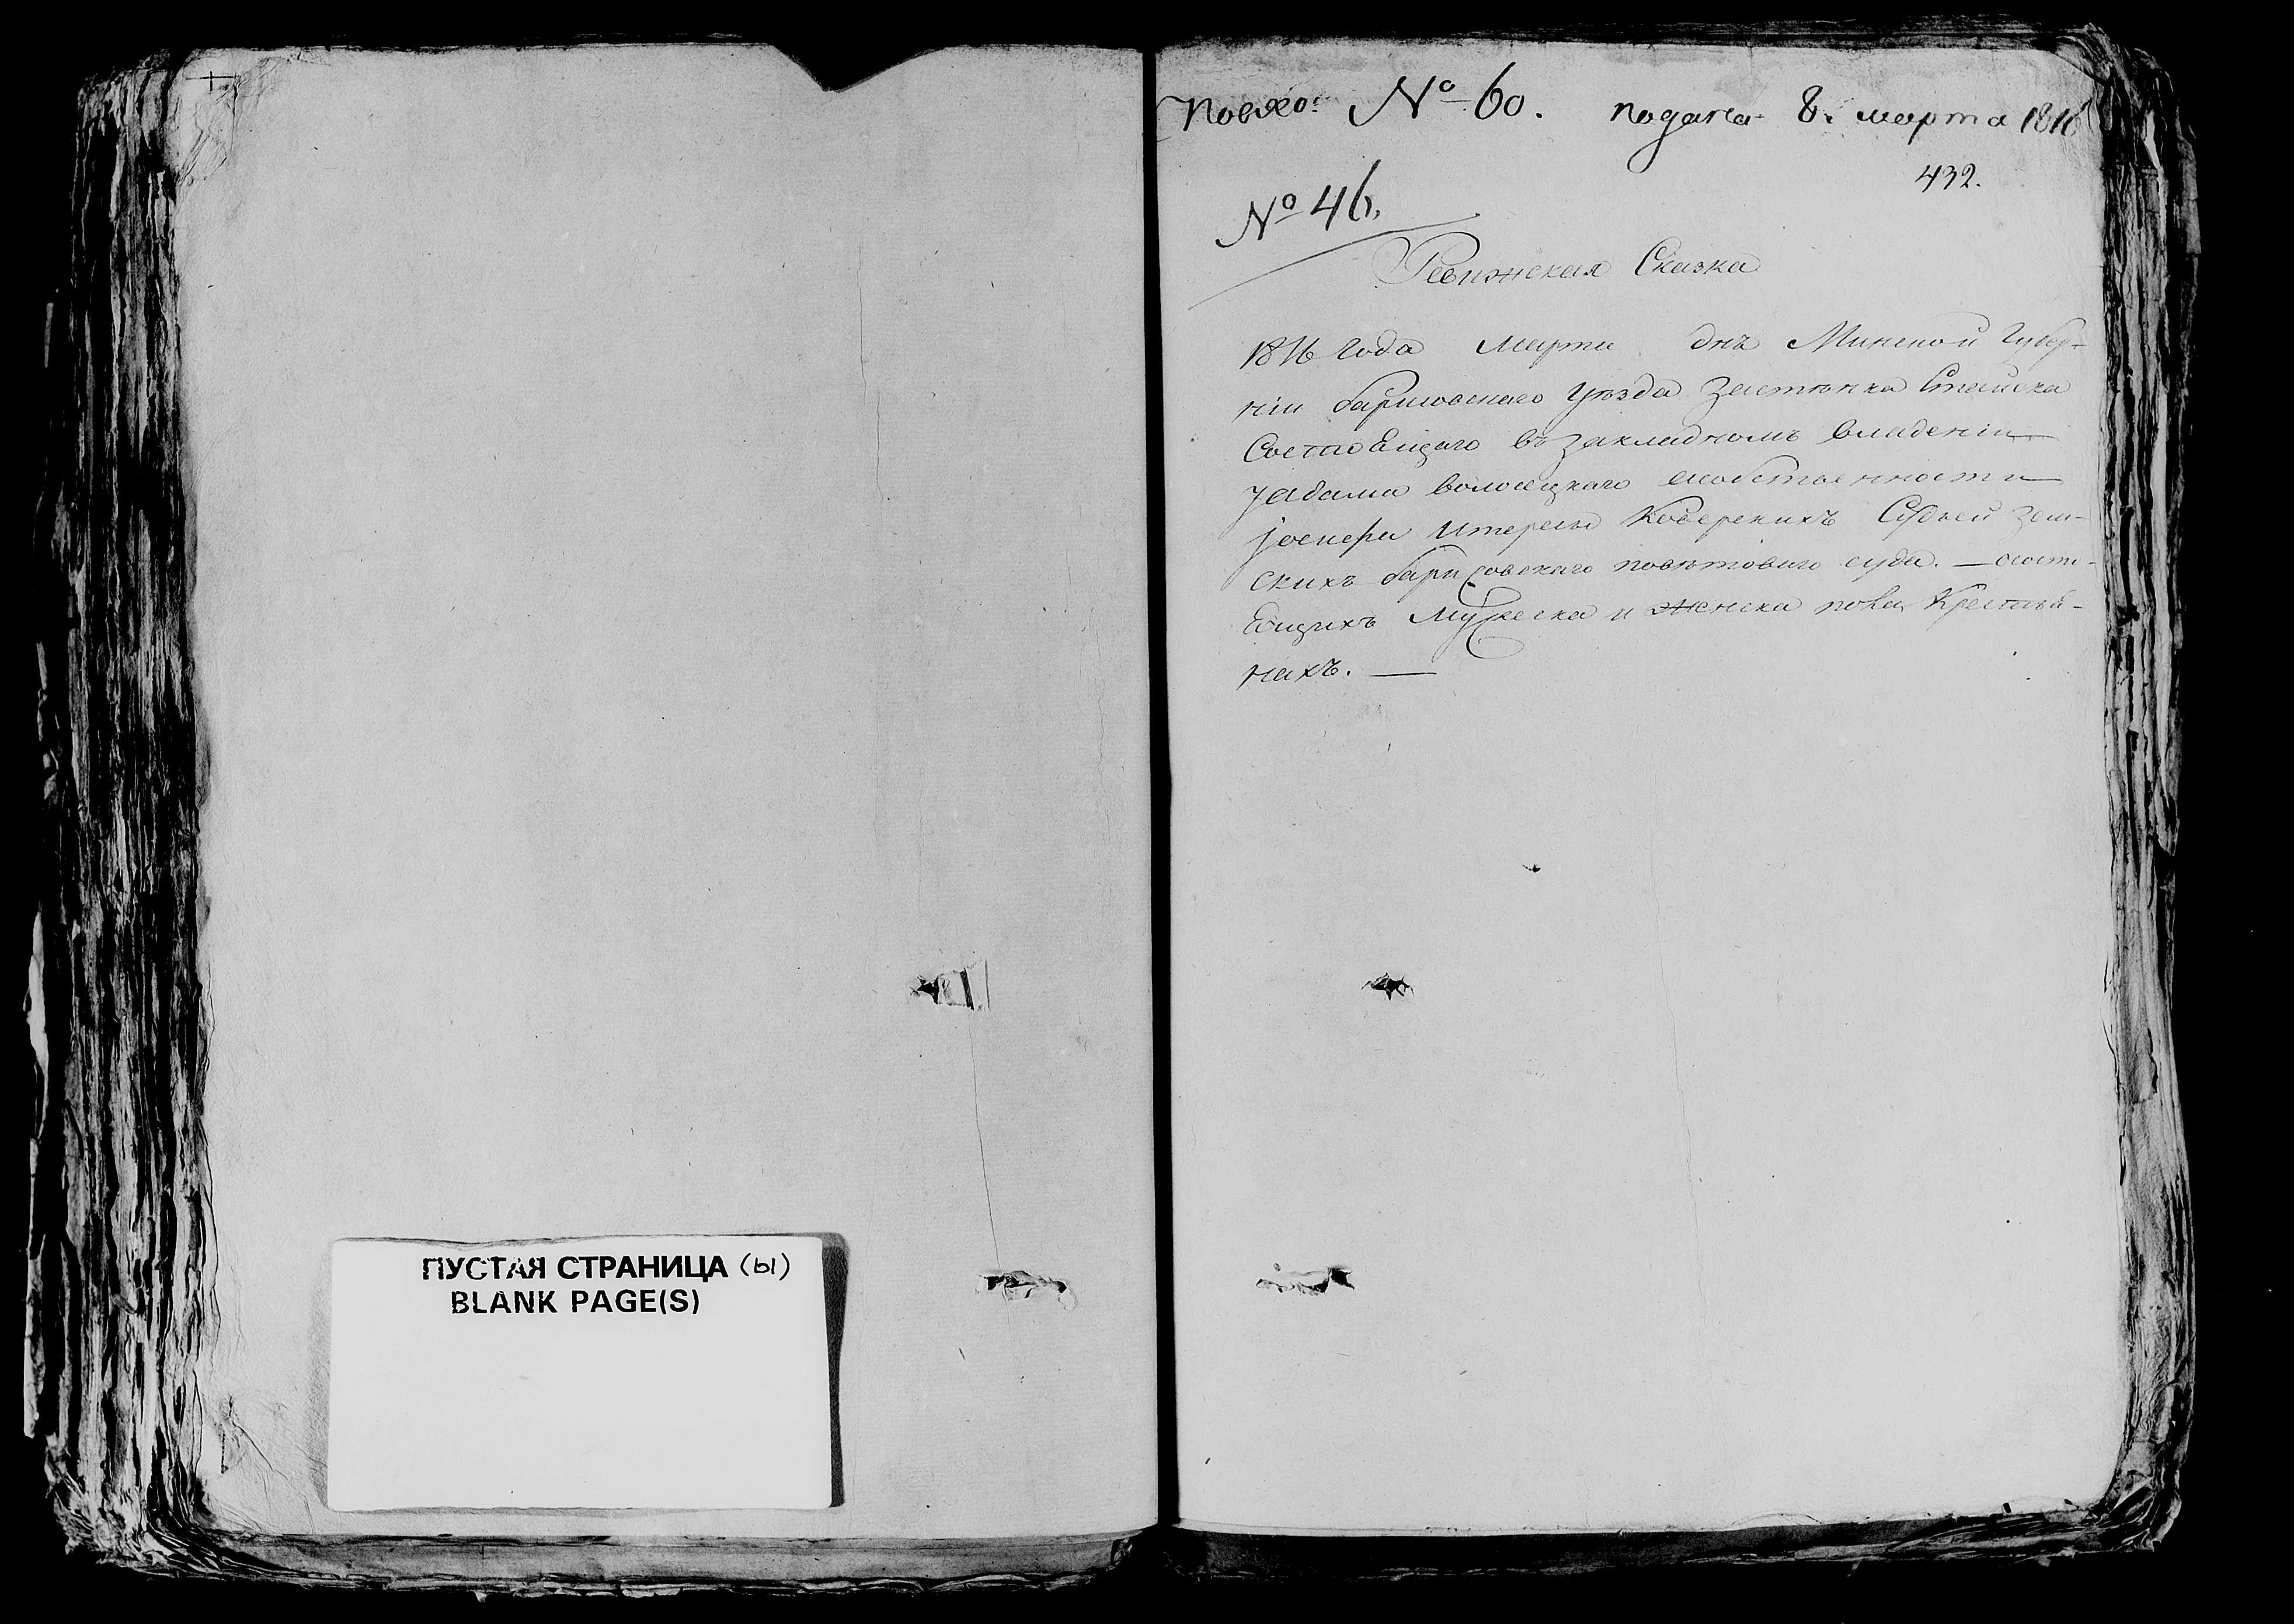 ПУСТАЯ СТРАНИЦА (ы)
BLANK PAGE(S)
№ 60. подана 8. марта 1816
432.
№ 46.
Ревизская Сказка
1816 Года Марта днъ Минской Губер-
ніи барисовскаго уѣзда Застѣнка
Состоящаго въ закладномъ владеніи
Адама волосецкаго
Судьей Зем-
скихъ барисовскаго повѣтоваго суда. —
Мужеска и женска пола Крестья-
нахъ. —